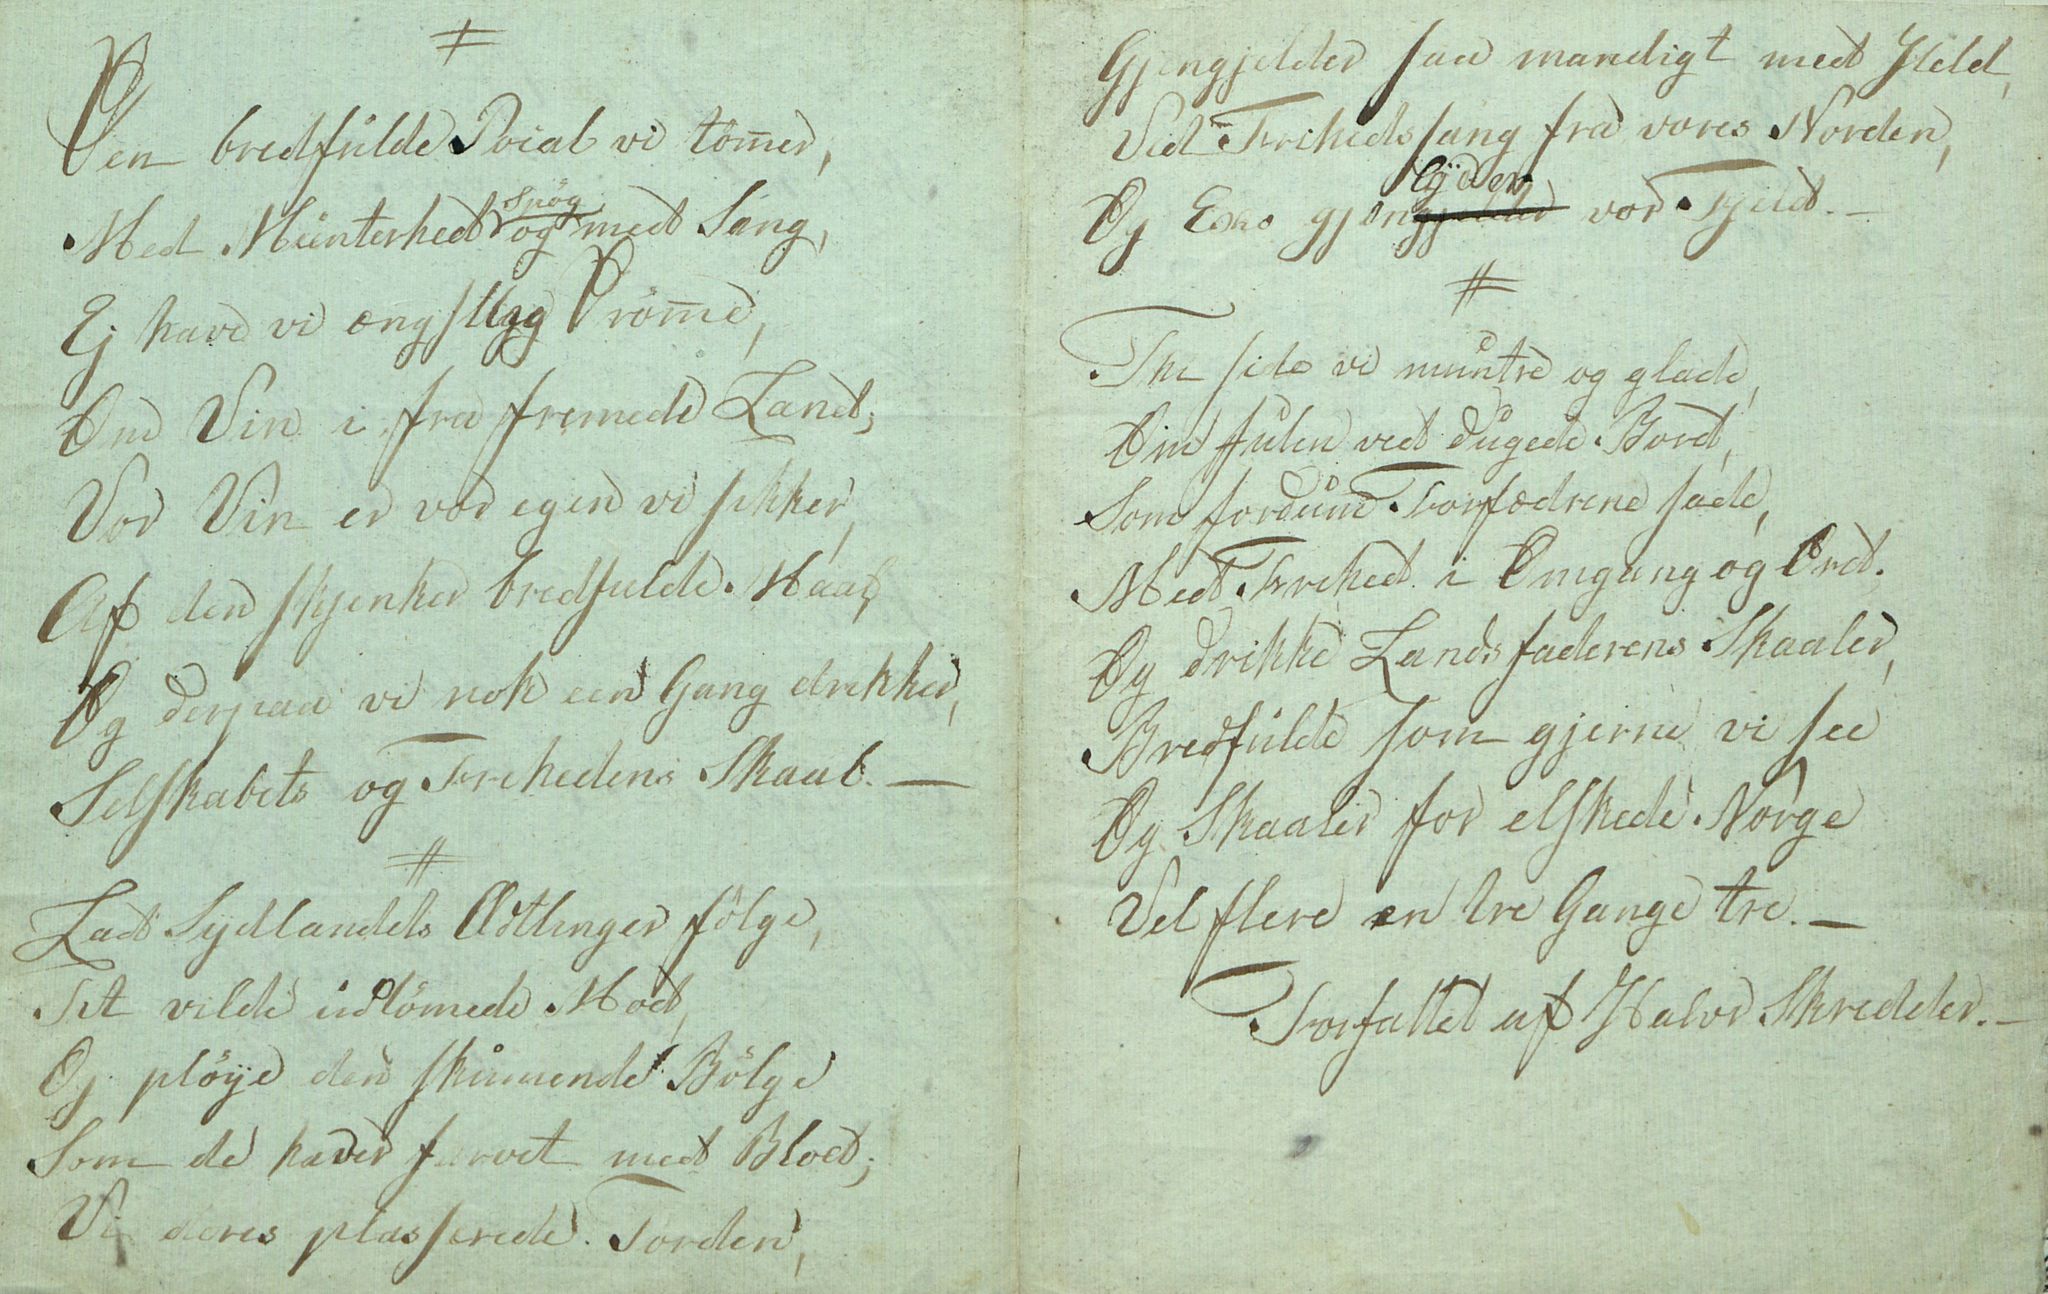 Den bredfulde Pocal vi tömer,
Med Munterhed Spög og med Sang,
Ej have vi ængstlig Drömme,
Om Vin i fra fremede Land;
Vor Vin er vor egen vi sikker,
Af den skjenker bredfulde Maal,
Og derpaa vi nok een Gang drikker,
Selskabets og Frihedens Skaal. —
Lad Sydlandets Ætlinger fölge,
Sit vilde udtömede Mod,
Og plöÿe den skummende Bölge
Som de haver farvet med Blod;
Vi deres plasserede Torden,
Gjengjelder saa mandigt med Held,
Ved Frihedssang fra vores Norden,
Og Echo gjenlÿder vor Fjeld. —
Thi side vi muntre og glade,
Om Julen ved dugede Bord,
Som fordum Forfædrene sade,
Med Frihed i Omgang og Ord.
Og drikke Landsfaderens Skaaler,
Bredfulde som gjerne vi see
Og Skaaler for elskede Norge
Vel flere en tre Gange tre. —
Forfattet af Halvor Skredder. —